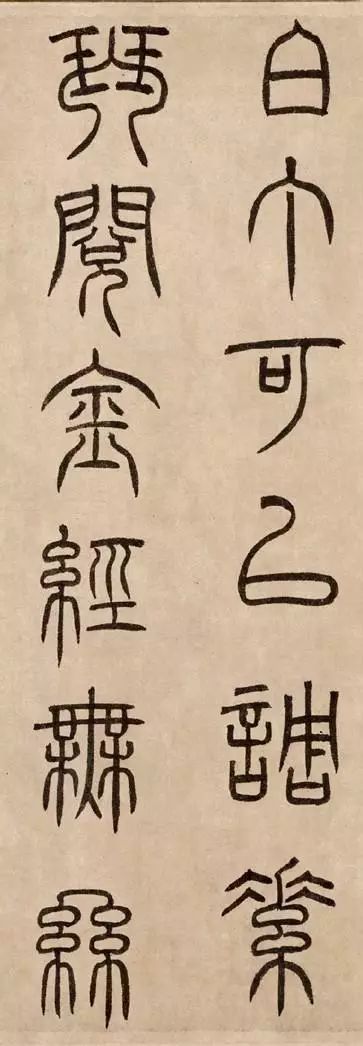 白丁可以調素
琴閱金經無絲